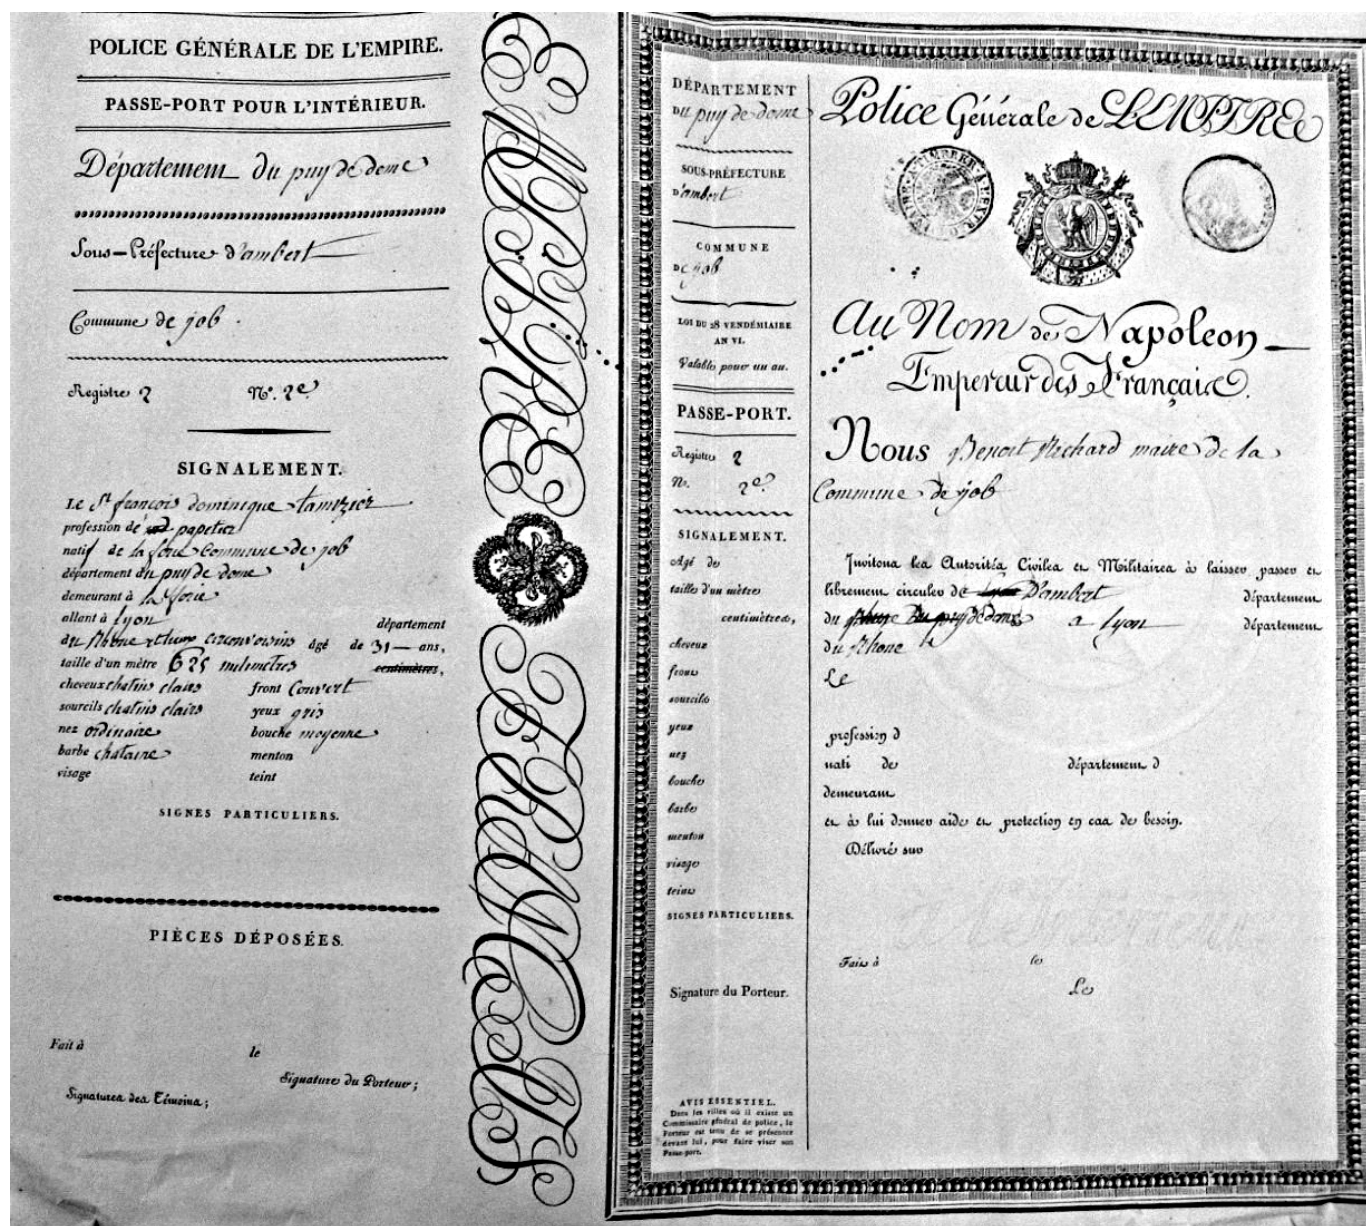 POLICE GÉNÉRALE DE L'EMPIRE.
PASSE-PORT POUR L'INTÉRIEUR.
Département du puy de dome
Sous-Préfecture d'ambert
Commune de job
Registre 2 N°. 2e
SIGNALEMENT.
Le St françois dominique tamizier
profession de papetier
natif de la forie Commune de job
département du puy de dome
demeurant à la forie
allant à lyon département
du Rhone et circonvoisins âgé de 31 ans,
taille d'un mètre 625 milimetres centimètres,
cheveux chatins clairs front Couvert
sourcils chatins clairs yeux gris
nez ordinaire bouche moyenne
barbe chataine menton
visage teint
SIGNES PARTICULIERS.
PIÈCES DÉPOSÉES.
Fait à le
Signature du Porteur;
Signatures des Témoins;
EMPIRE FRANCAIS
DÉPARTEMENT
du puy de dome
SOUS-PRÉFECTURE
D'ambert
COMMUNE
DE job
LOI DU 28 VENDÉMIAIRE
AN VI.
Valable pour un an.
PASSE-PORT.
Registre 2
No. 2e
SIGNALEMENT.
Agé de
taille d'un mètre
centimètres,
cheveux
front
sourcils
yeux
nez
bouche
barbe
menton
visage
teint
SIGNES PARTICULIERS.
Signature du Porteur.
AVIS ESSENTIEL.
Dans les villes où il existe un
Commissaire général de police, le
Porteur est tenu de se présenter
devant lui, pour faire viser son
Passe-port.
Police Générale de L'EMPIRE
Au Nom de Napoleon
Empereur des Français.
Nous Benoit Richard maire de la
Commune de job
Invitons les Autorités Civiles et Militaires à laisser passer et
librement circuler de D'ambert département
du puy de dome a lyon département
du Rhone
Le
profession d
nati de département d
demeurant
et à lui donner aide et protection en cas de besoin.
Délivré sur
Fait à le
Le